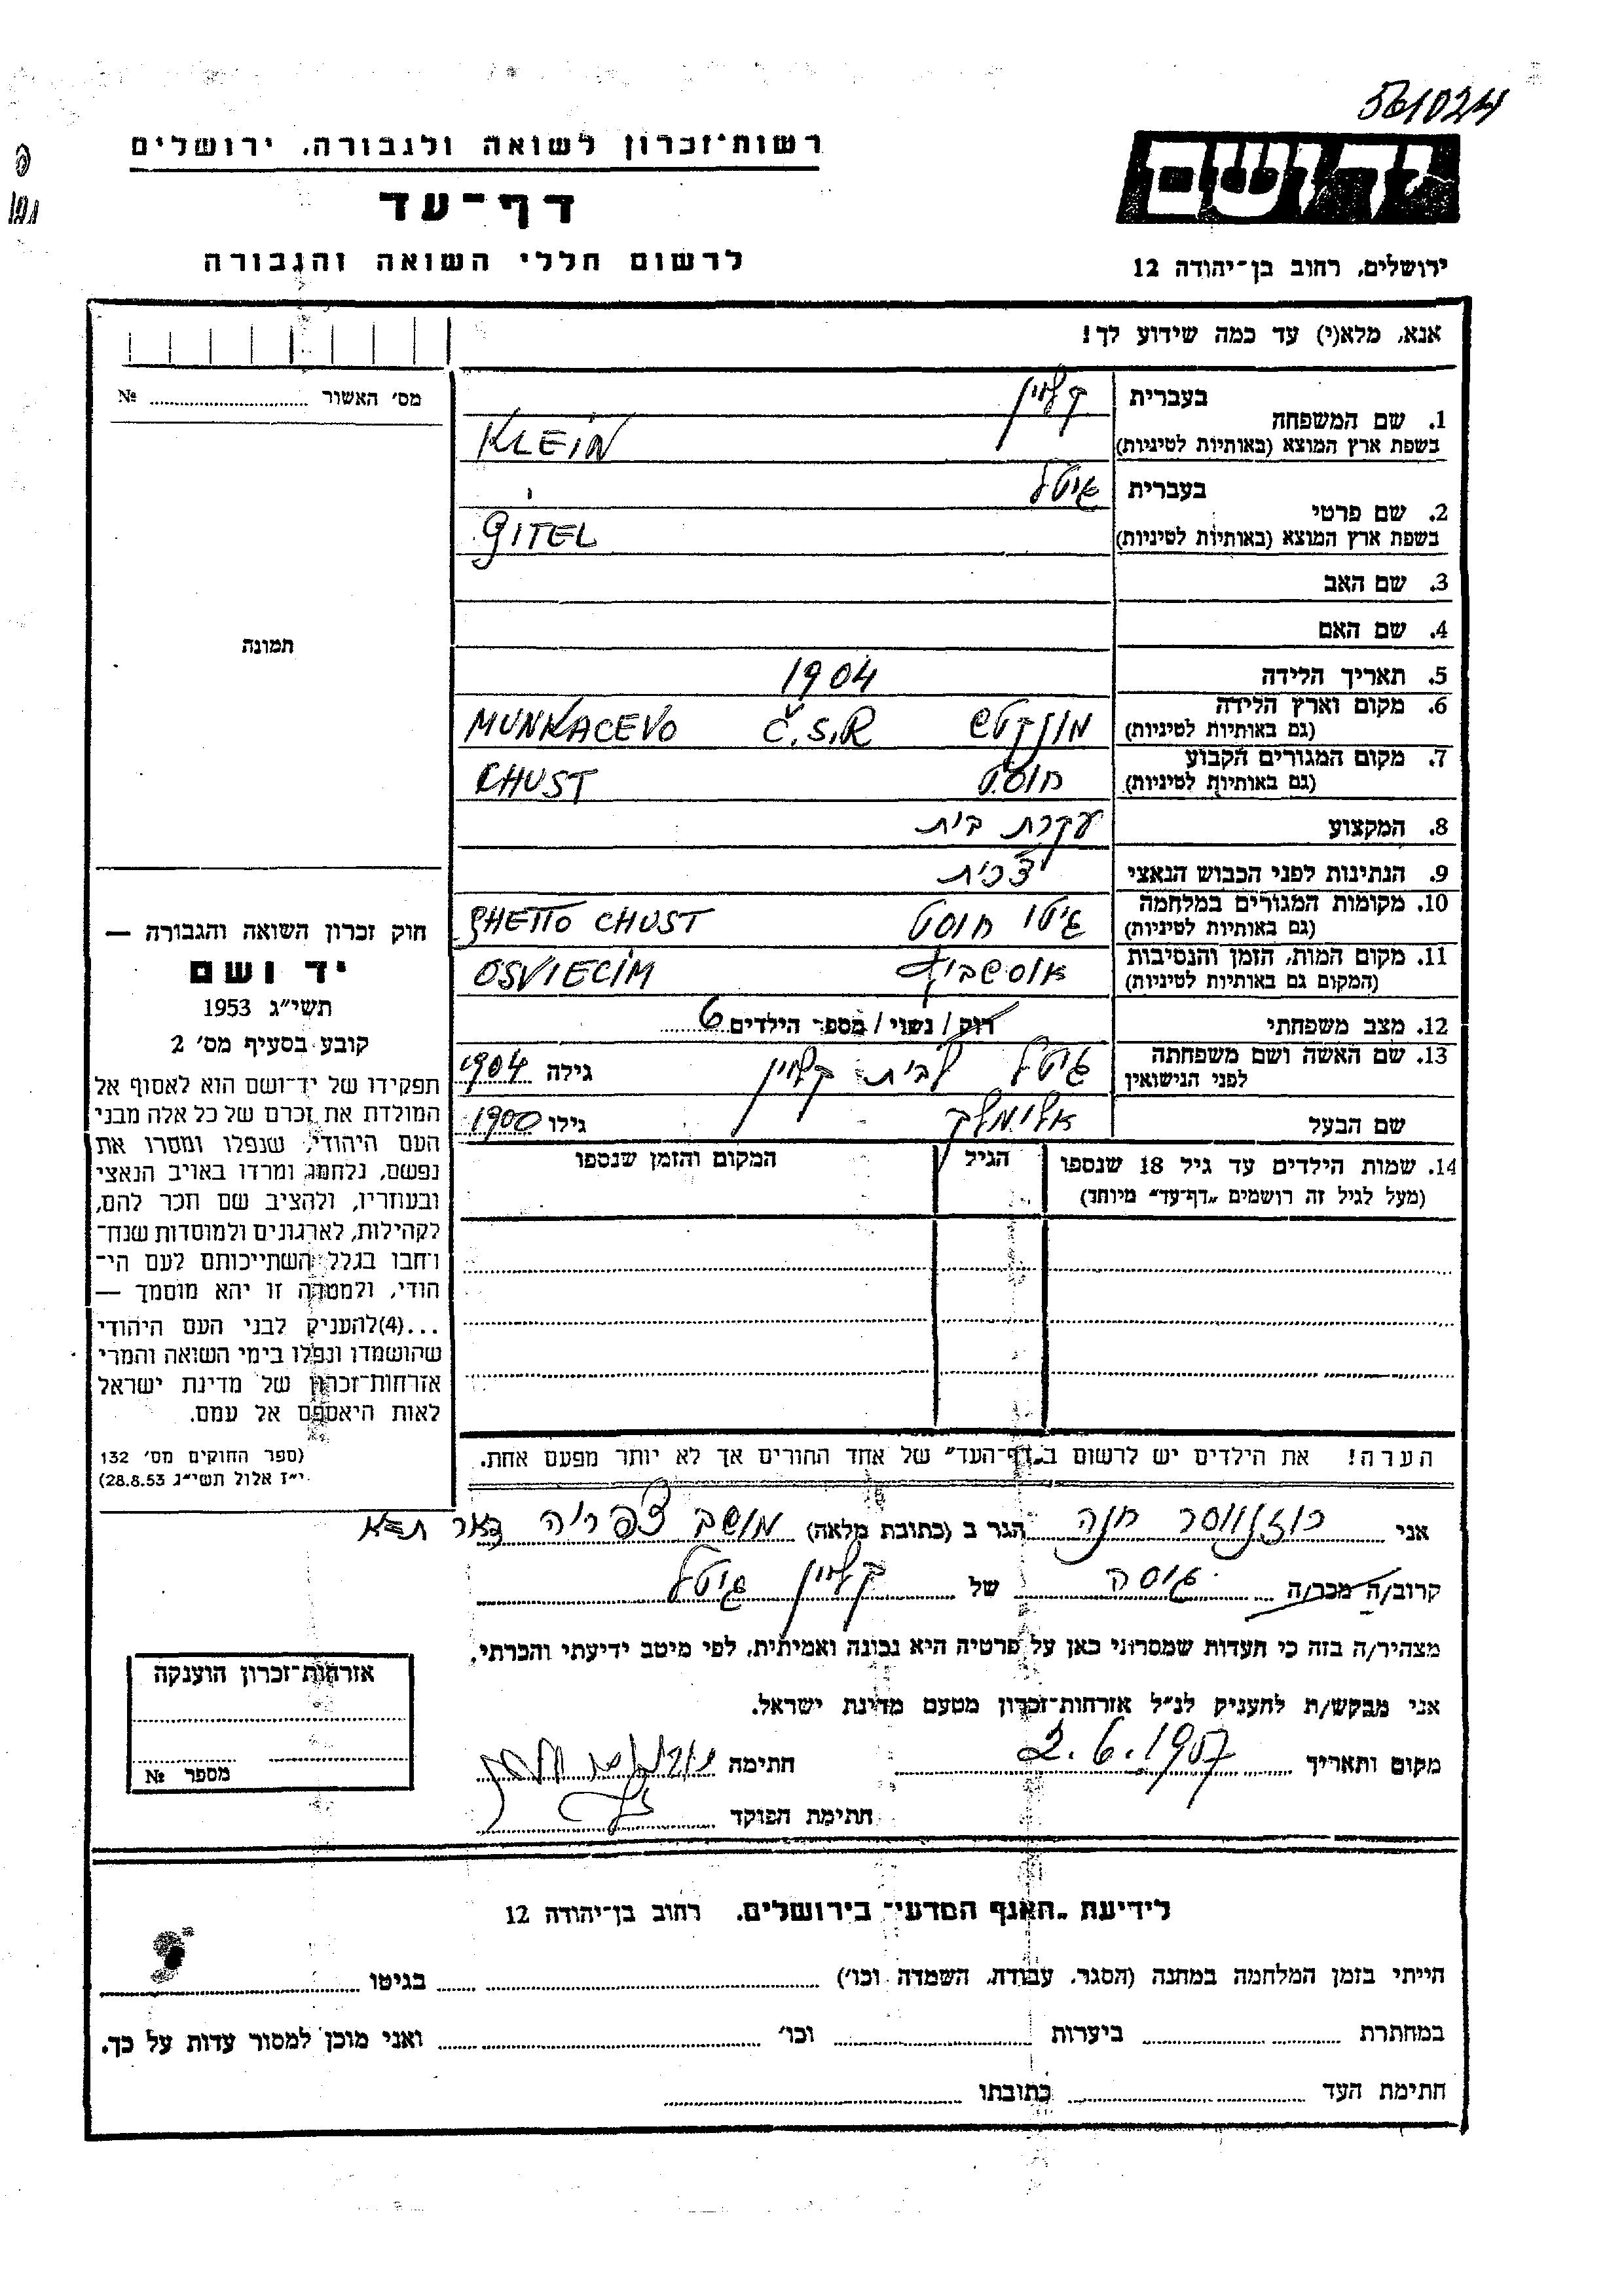 561024
רשות־זכרון לשואה ולגבורה, ירושלים
דף־עד
לרשום חללי השואה והגבורה
יד ושם
ירושלים, רחוב בן־יהודה 12
אנא, מלא(י) עד כמה שידוע לך!
מס׳ האשור № 
1. שם המשפחה
בעברית קליין
בשפת ארץ המוצא (באותיות לטיניות) KLEIN
2. שם פרטי
בעברית גיטל
בשפת ארץ המוצא (באותיות לטיניות) GITEL
3. שם האב
4. שם האם
תמונה
5. תאריך הלידה 1904
6. מקום וארץ הלידה (גם באותיות לטיניות) מונקטש Č.S.R MUNKACEVO
7. מקום המגורים הקבוע (גם באותיות לטיניות) חוסט CHUST
8. המקצוע עקרת בית
9. הנתינות לפני הכבוש הנאצי צ׳כית
10. מקומות המגורים במלחמה (גם באותיות לטיניות) גיטו חוסט GHETTO CHUST
11. מקום המות, הזמן והנסיבות (המקום גם באותיות לטיניות) אוסשביץ OSVIECIM
12. מצב משפחתי רוק/נשוי/מספר הילדים 6
13. שם האשה ושם משפחתה לפני הנישואין גיטל לבית קליין גילה 1904
שם הבעל אלימלך גילו 1900
14. שמות הילדים עד גיל 18 שנספו הגיל המקום והזמן שנספו
(מעל לגיל זה רושמים „דף־עד״ מיוחד)
הערה! את הילדים יש לרשום ב„דף־העד״ של אחד ההורים אך לא יותר מפעם אחת.
חוק זכרון השואה והגבורה —
יד ושם
תשי״ג 1953
קובע בסעיף מס׳ 2
תפקידו של יד־ושם הוא לאסוף אל
המולדת את זכרם של כל אלה מבני
העם היהודי, שנפלו ומסרו את
נפשם, נלחמו ומרדו באויב הנאצי
ובעוזריו, ולהציב שם וזכר להם,
לקהילות, לארגונים ולמוסדות שנח־
רבו בגלל השתייכותם לעם הי־
הודי, ולמטרה זו יהא מוסמך —
...(4)להעניק לבני העם היהודי
שהושמדו ונפלו בימי השואה והמרי
אזרחות־זכרון של מדינת ישראל
לאות היאספם אל עמם.
(ספר החוקים מס׳ 132
י״ז אלול תשי״ג 28.8.53)
אני רוזנווסר חנה הגר ב (כתובת מלאה) מושב צפריה דאר ת״א
קרוב/ה מכר/ה גיסה של קליין גיטל
מצהיר/ה בזה כי העדות שמסרתי כאן על פרטיה היא נכונה ואמיתית, לפי מיטב ידיעתי והכרתי,
אני מבקש/ת להעניק לנ״ל אזרחות־זכרון מטעם מדינת ישראל.
מקום ותאריך 2.6.1957 חתימה
חתימת הפוקד
אזרחות־זכרון הוענקה
מספר №
לידיעת „האגף המדעי״ בירושלים, רחוב בן־יהודה 12
הייתי בזמן המלחמה במחנה (הסגר, עבודה, השמדה וכו׳) בגיטו
במחתרת ביערות וכו׳ ואני מוכן למסור עדות על כך.
חתימת העד כתובתו